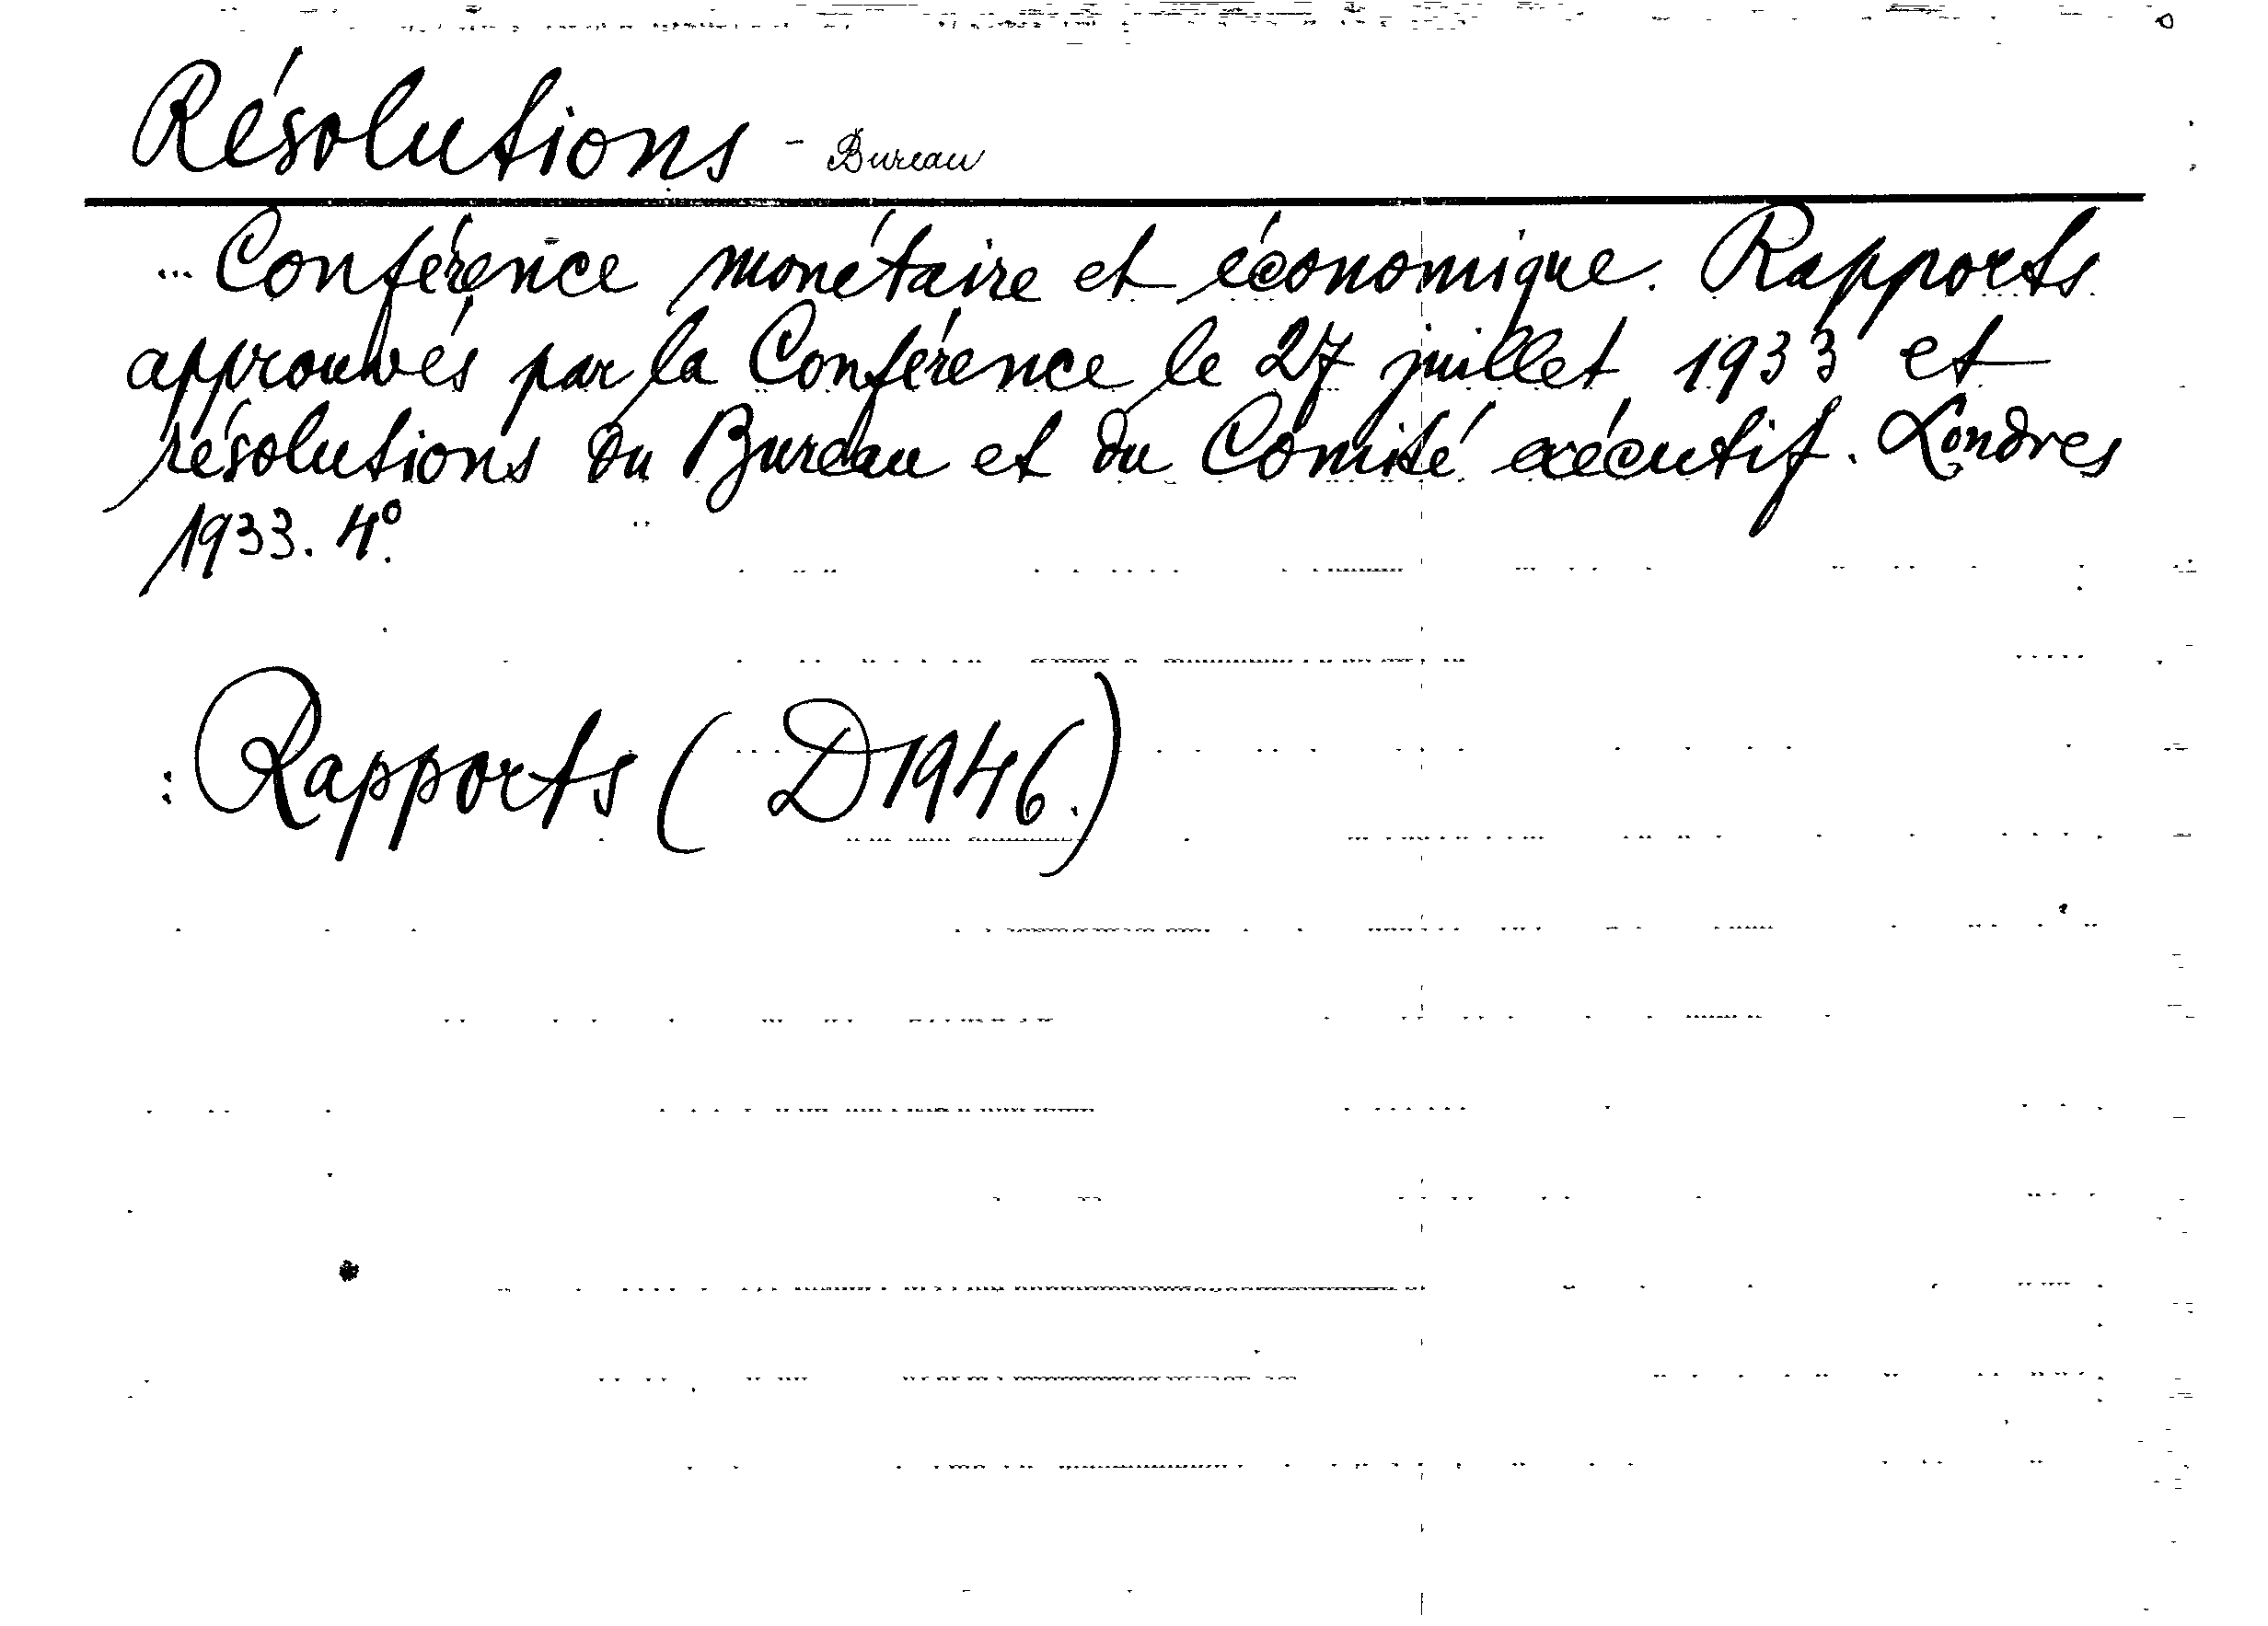 Résolutions - Bureau
Conférence monétaire et économique. Rapports
approuvés par la Conférence le 27 juillet 1933 et
résolutions du Bureau et du Comité exécutif. Londres
1933. 4º.
: Rapports ( D1946.)